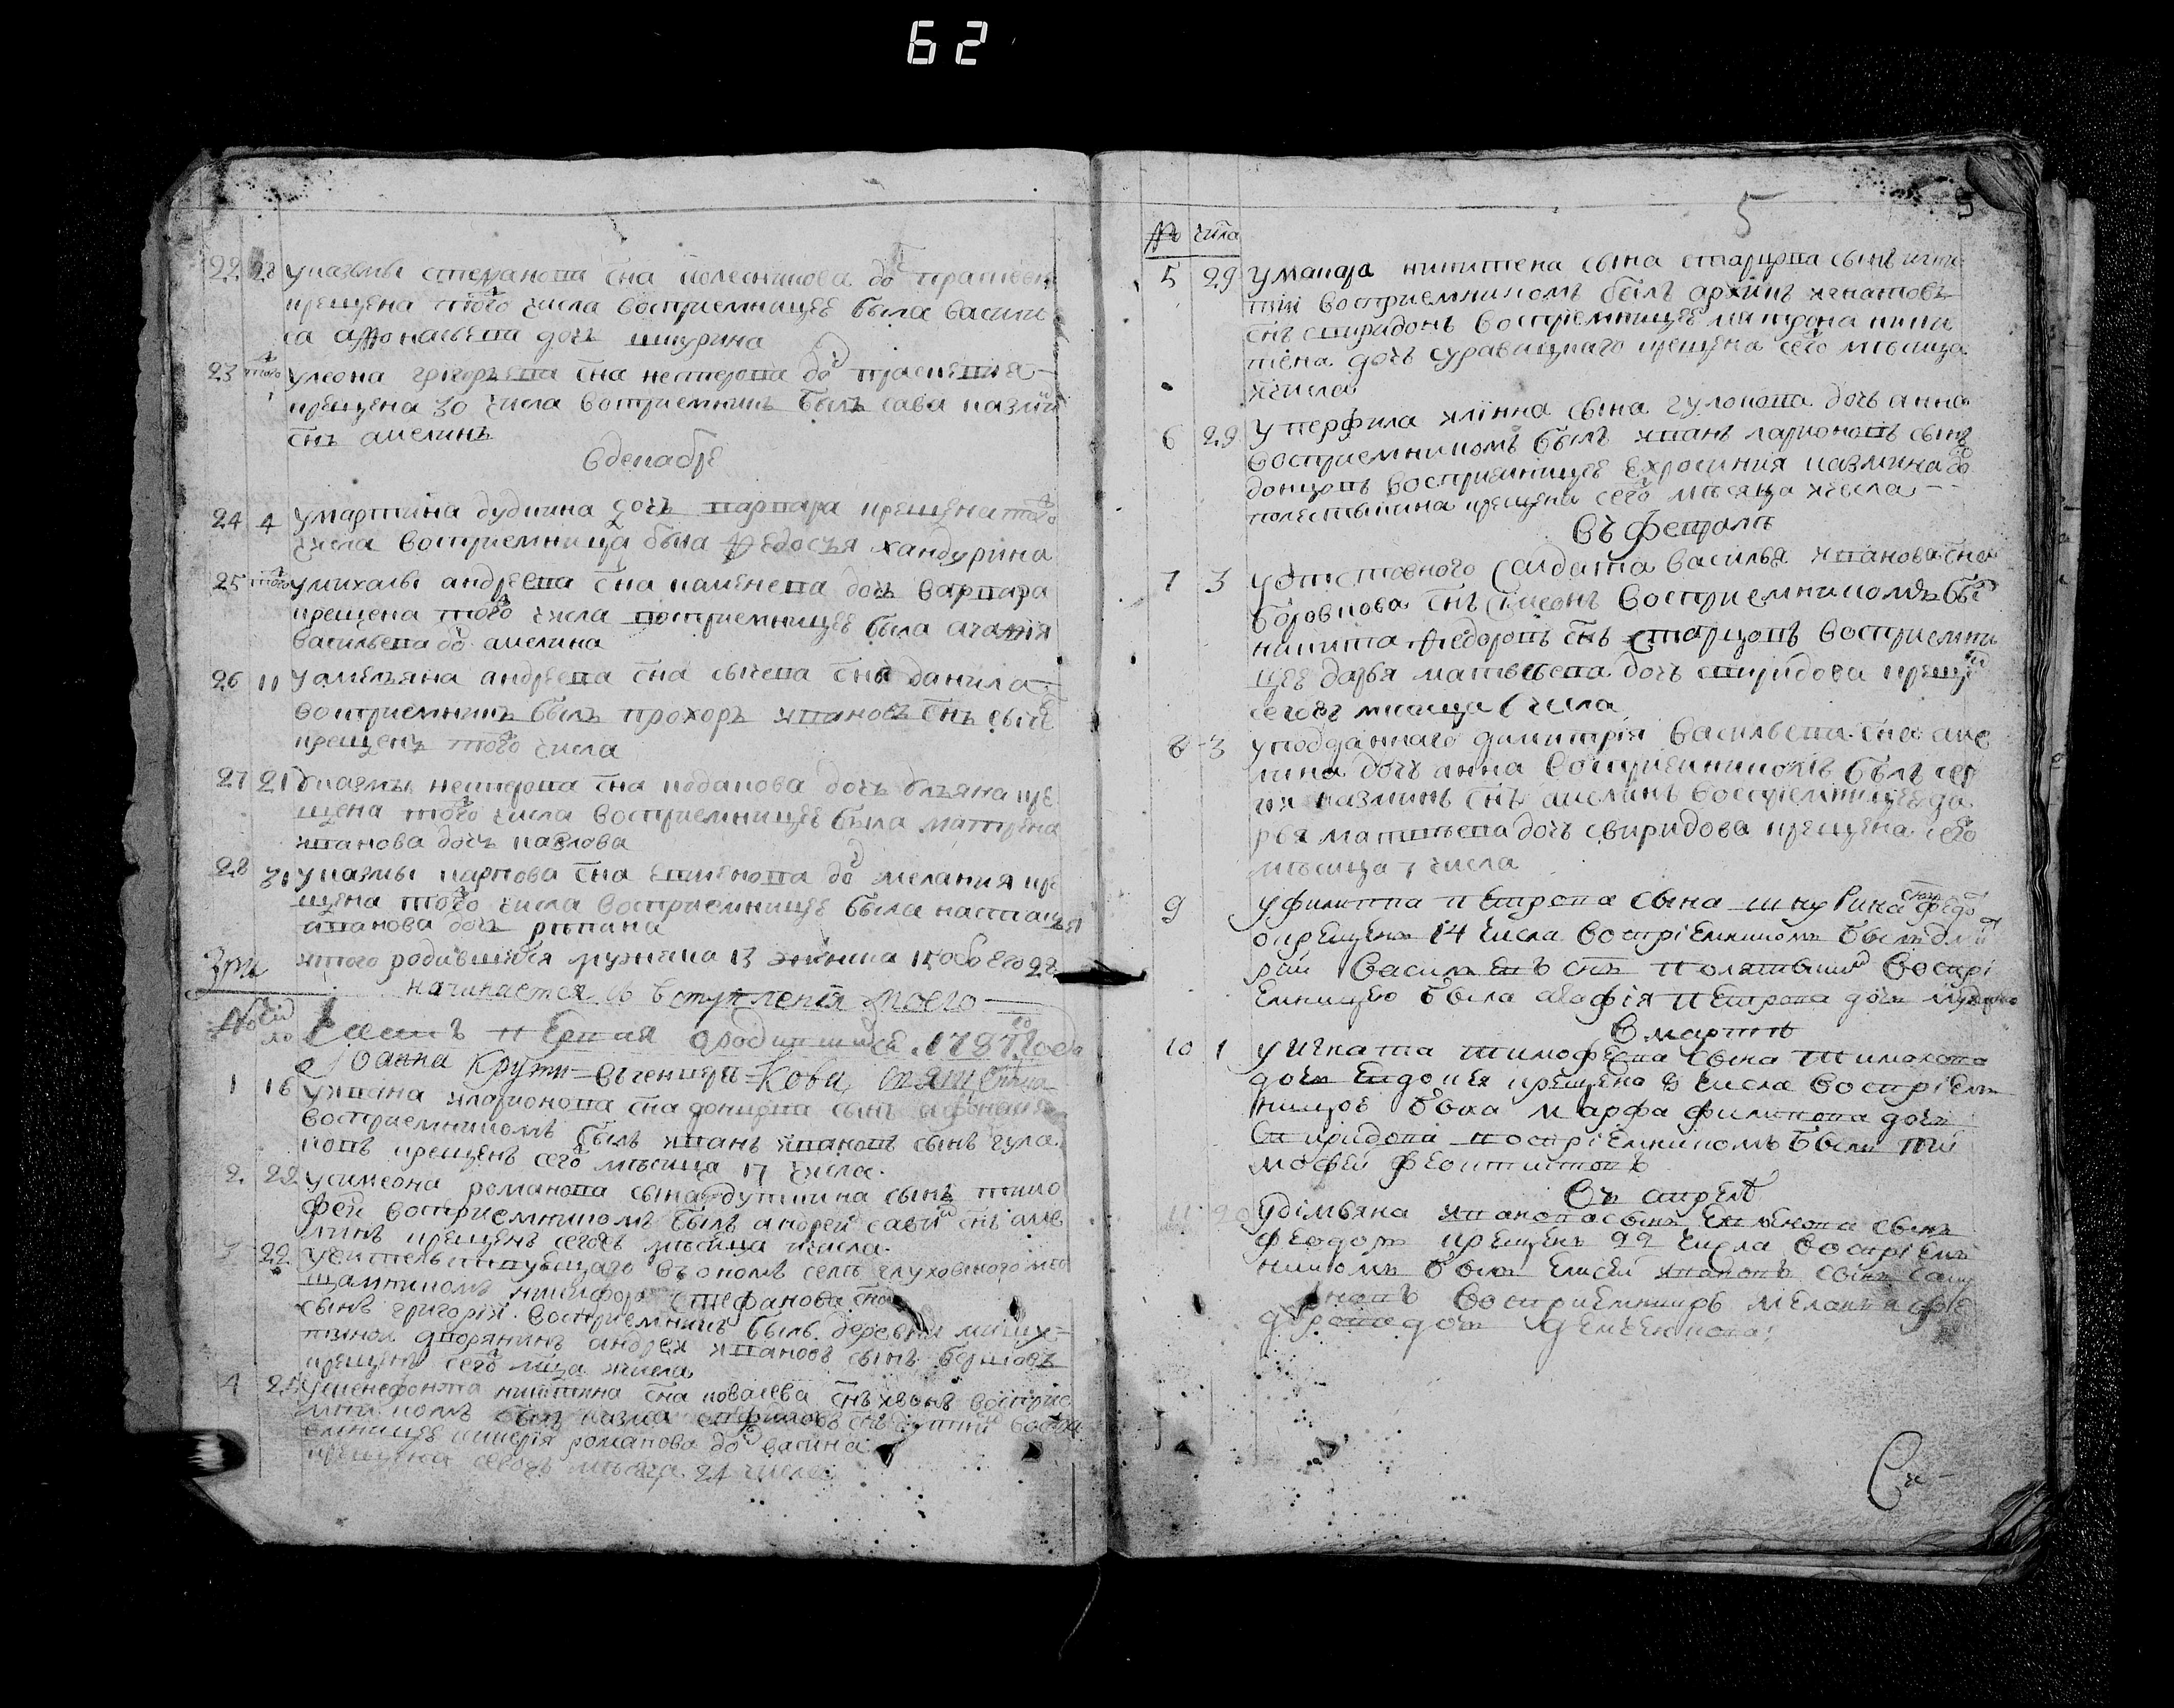 62
22 28 укозмы степанова сна колесникова до прасковя
крещена того числа восприемницее была васили
са афонасьева дочь шкурина
23 того улеона григоръева сна нестерова до прасковия
крещена 30 числа восприемникъ былъ сава козмин
снъ амелинъ
вдекабре
24 4 умартина дудкина дочь варвара крещена того
числа восприемница была федосъя хандурина
25 того умихаилы андреева сна каменева дочь варвара
крещена того числа восприемницее была агафия
васильева до амелина
26 11 уамельяна андреева сна сычева снъ данила
восприемникъ былъ прохоръ ивановъ снъ сыче
крещенъ того числа
27 21 укозмы нестерова сна кобакова дочь ульяна кре
щена того числа восприемницее была матрена
иванова дочь павлова
28 31 укозмы карпова сна евменова до мелания кре
щена того числа восприемницее была настасья
иванова дочь репина
Зри итого родившихся мужчина 13 женина 15 обоего 28
начинается с вступления моего
№ число Часть первая ородившихся 1787 года
Иоанна Крути=въгенваре=кова священика
1 16 уивана иларионова сна донцова сынъ афонасей
восприемникомъ былъ иванъ ивановъ сынъ гула
ковъ крещенъ сего месяца 17 числа.
2. 22. усимеона романова сына дуткина сынъ тимо
фей восприемникомъ былъ андрей савин снъ аме
линъ крещенъ сегожъ месяца числа.
3 22. ужительствующаго въ ономъ селе глуховского ме
щанином никифора стефанова сна
сынъ григорий. восприемникъ былъ деревни
дворянинъ андрей ивановъ сынъ
крещенъ сего мца числа
4 25 уксенофонта никитина сна ковалева снъ иванъ восприе
мникомъ былъ козма снъ восприе
мницее романова до васина
крещена сегожъ месяца 24 числа
5
№ числа
5 29 умакара никитена сына старцова сынъ игна
тий восприемникомъ былъ архипъ игнатовъ
снъ спиридонъ восприемницее матрона ники
тена дочь суравицкаго крещена сего месяца
числа
6 29 уперфила илиина сына гулокова дочь анна
восприемникомъ былъ иванъ ларионовъ сынъ
донцовъ восприемницее ехросиния казмина до
колесникина крещена сего месяца числа
въ феврале
7 3 уотставного салдата василья иванова сна
боровкова снъ симеонъ восприемникомъ бы
никита федоровъ снъ старцовъ восприемни
цее дарья матвеева дочь спиридова креще
сегожъ месяца 6 числа
8 3 уподданнаго димитрия васильева сна аме
лина дочь анна восприемникомъ былъ сер
ги казминъ снъ амелинъ восприемницее да
рья матвеева дочь свиридова крещена сего
месяца 7 числа
9 уфилиппа петрова сына шкурина снъ федо
окрещенъ 14 числа восприемникомъ былъ дми
рий васильевъ снъ полятыкин воспри
емницею была агафия петрова дочь
в марте
10 1 уигната тимофеева сына тимохова
дочь евдокия крещена 2 числа восприем
ницое была марфа филипова дочь
спиридова восприемникомъ былъ ти
мофей феоктистовъ
въ апреле
11 20 удимьяна иванова сына евменова сынъ
феодотъ крещенъ 22 числа восприем
никомъ былъ елисей ивановъ сынъ
восприемнице меланья фе
дорова дочь деменкова
Св-